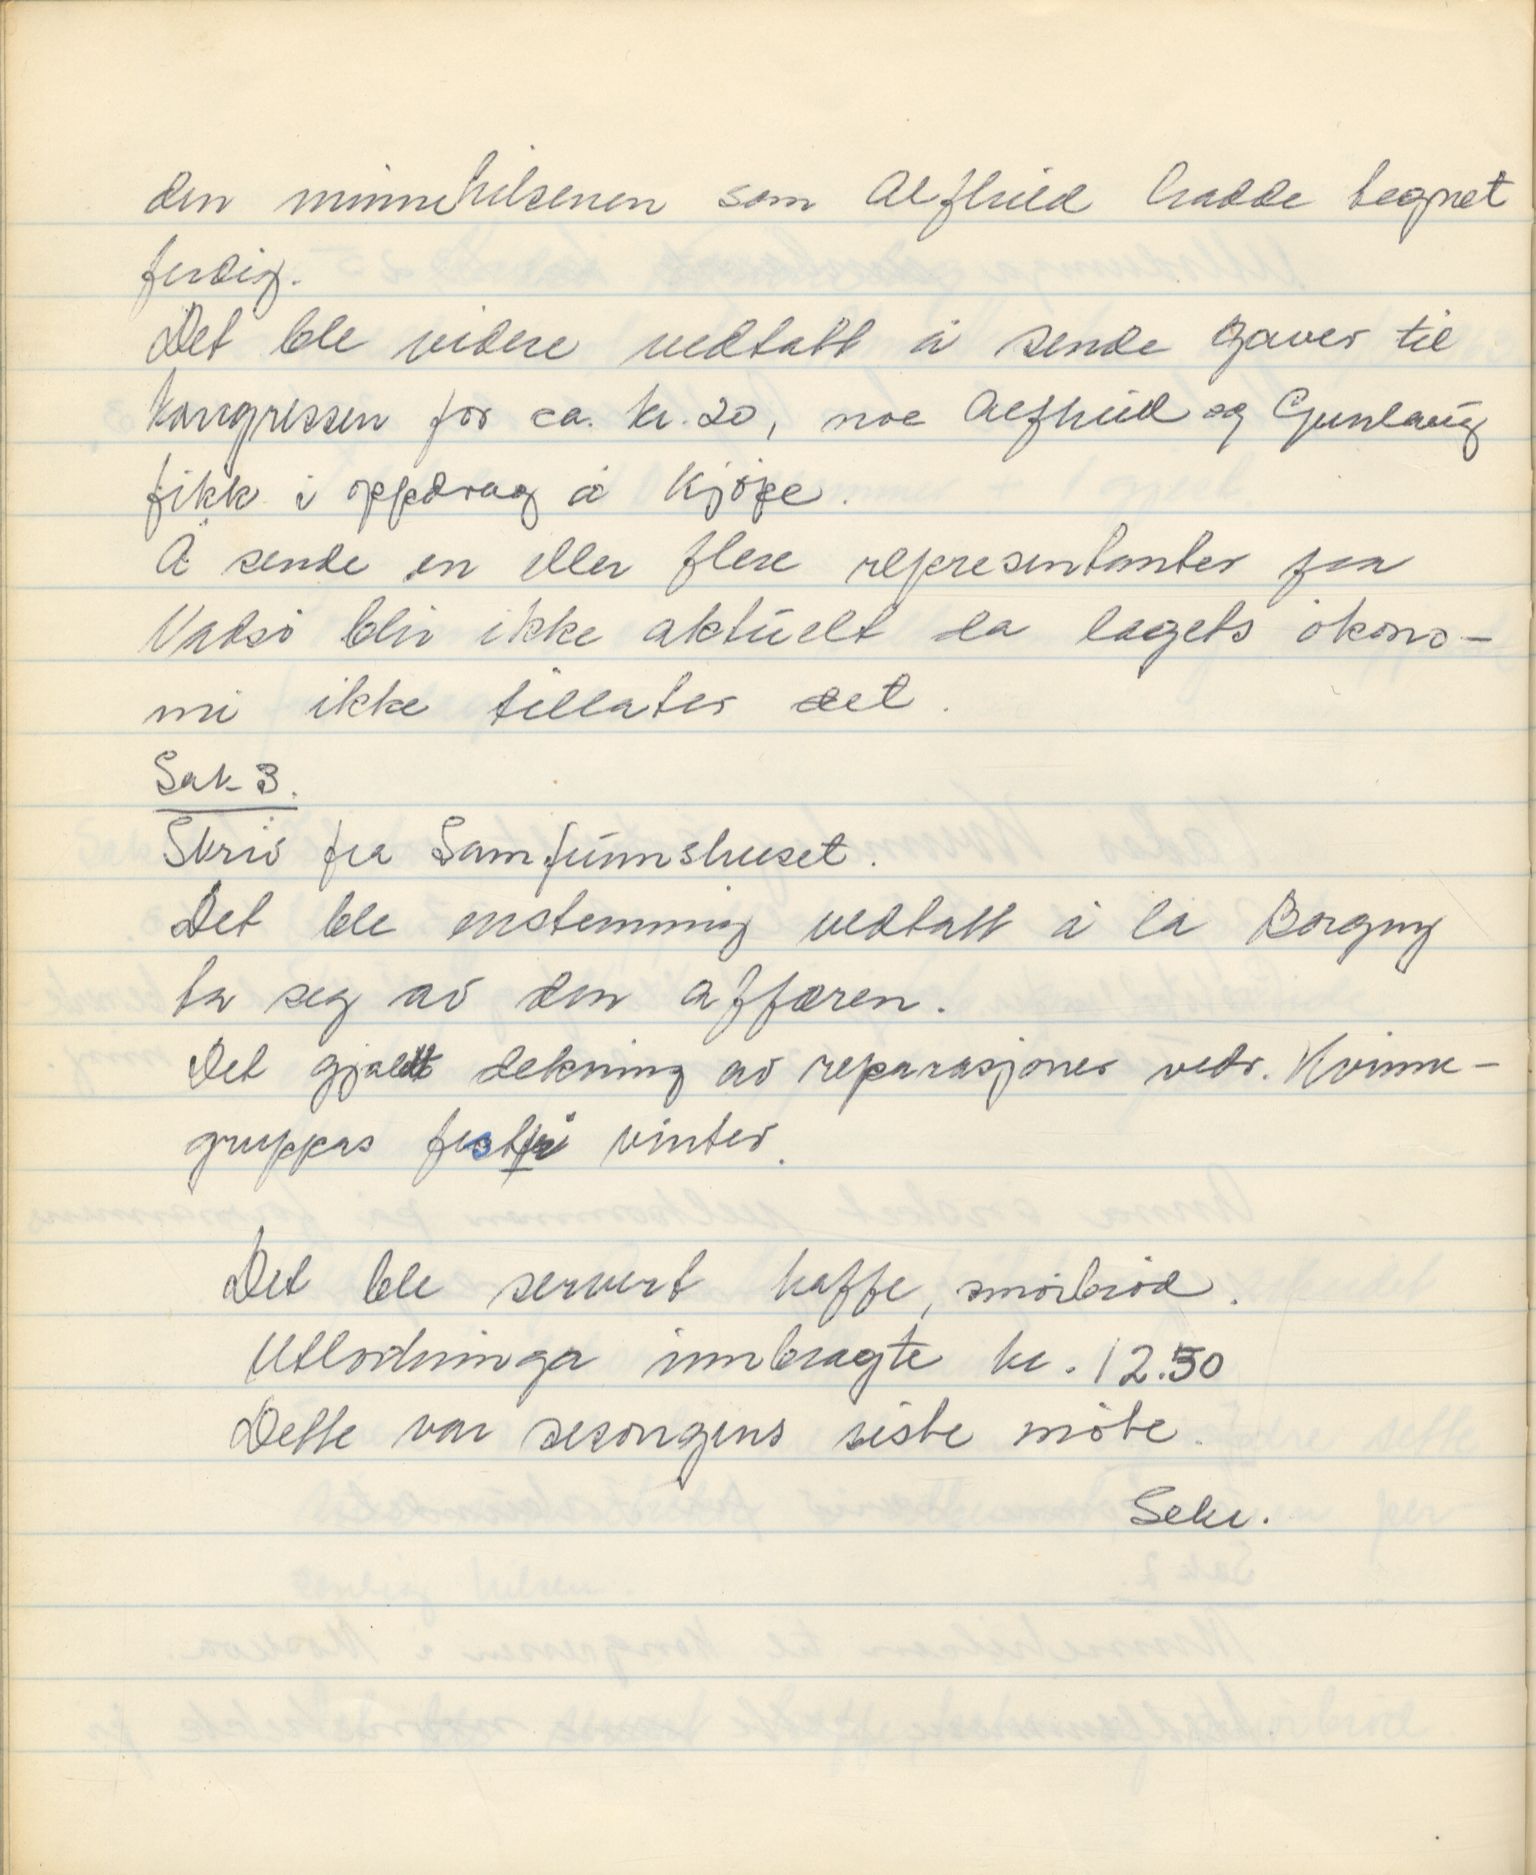 den minnehilsenen som Alfhild hadde tegnet
ferdig.
Det ble videre vedtatt å sende gaver til
kongressen for ca. kr. 20, noe Alfhild og Gunlaug
fikk i oppdrag å kjøpe.
Å sende en eller flere representanter fra
Vadsö blir ikke aktuelt da lagets ökono-
mi ikke tillater det.
Sak 3.
Skriv fra Samfunnshuset.
Det ble enstemmig vedtatt å la Borgny
ta seg av den affæren.
Det gjaldt dekning av reparasjoner vedr. Kvinne-
gruppas fest i vinter.
Det ble servert kaffe, smörbröd.
Utlodninga innbragte kr. 12.50
Dette var sesongens siste möte.
Sekr.